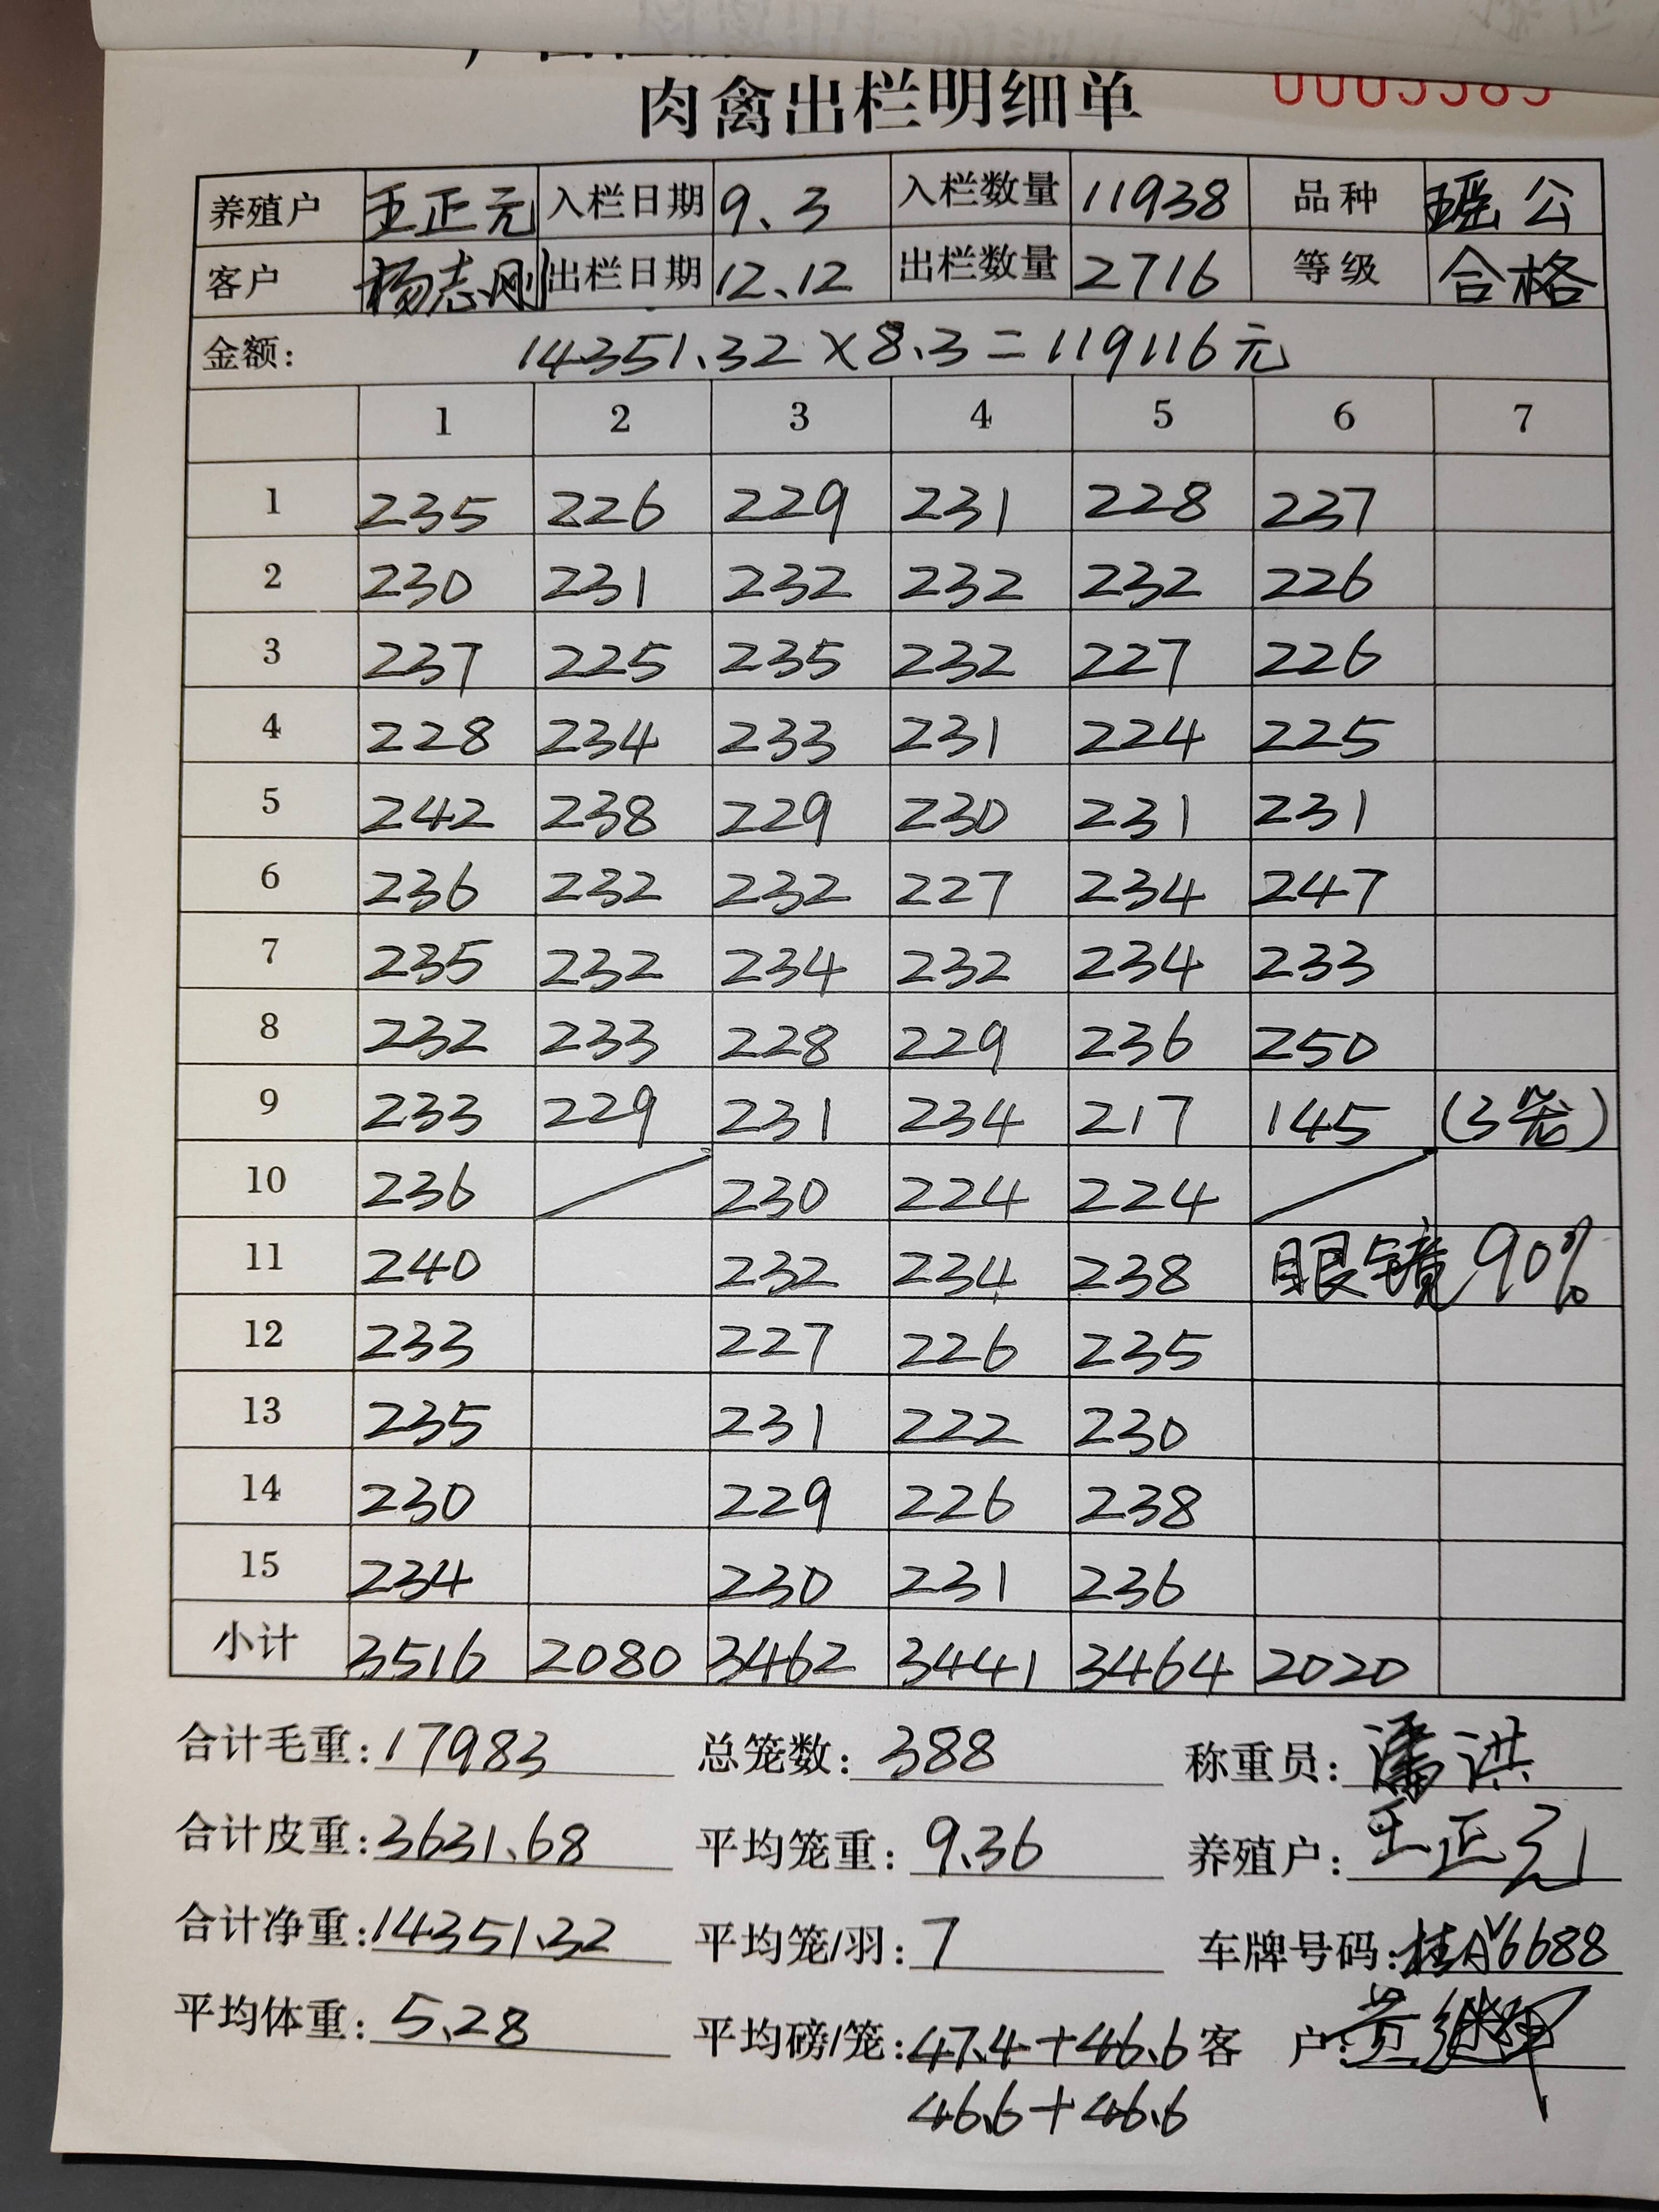 肉禽出栏明细单 0005385
养殖户 王正元 入栏日期 9.3 入栏数量 11938 品种 瑶公
客户 杨志刚 出栏日期 12.12 出栏数量 2716 等级 合格
金额: 14351.32×8.3=119116元
1 2 3 4 5 6 7
1 235 226 229 231 228 237
2 230 231 232 232 232 226
3 237 225 235 232 227 226
4 228 234 233 231 224 225
5 242 238 229 230 231 231
6 236 232 232 227 234 247
7 235 232 234 232 234 233
8 232 233 228 229 236 250
9 233 229 231 234 217 145 (3笼)
10 236 230 224 224
11 240 232 234 238 眼镜90%
12 233 227 226 235
13 235 231 222 230
14 230 229 226 238
15 234 230 231 236
小计 3516 2080 3462 3441 3464 2020
合计毛重:17983 总笼数:388 称重员:潘洪
合计皮重:3631.68 平均笼重:9.36 养殖户:王正元
合计净重:14351.32 平均笼/羽:7 车牌号码:桂AY6688
平均体重:5.28 平均磅/笼:47.4+46.6 客 户:黄继
46.6+46.6